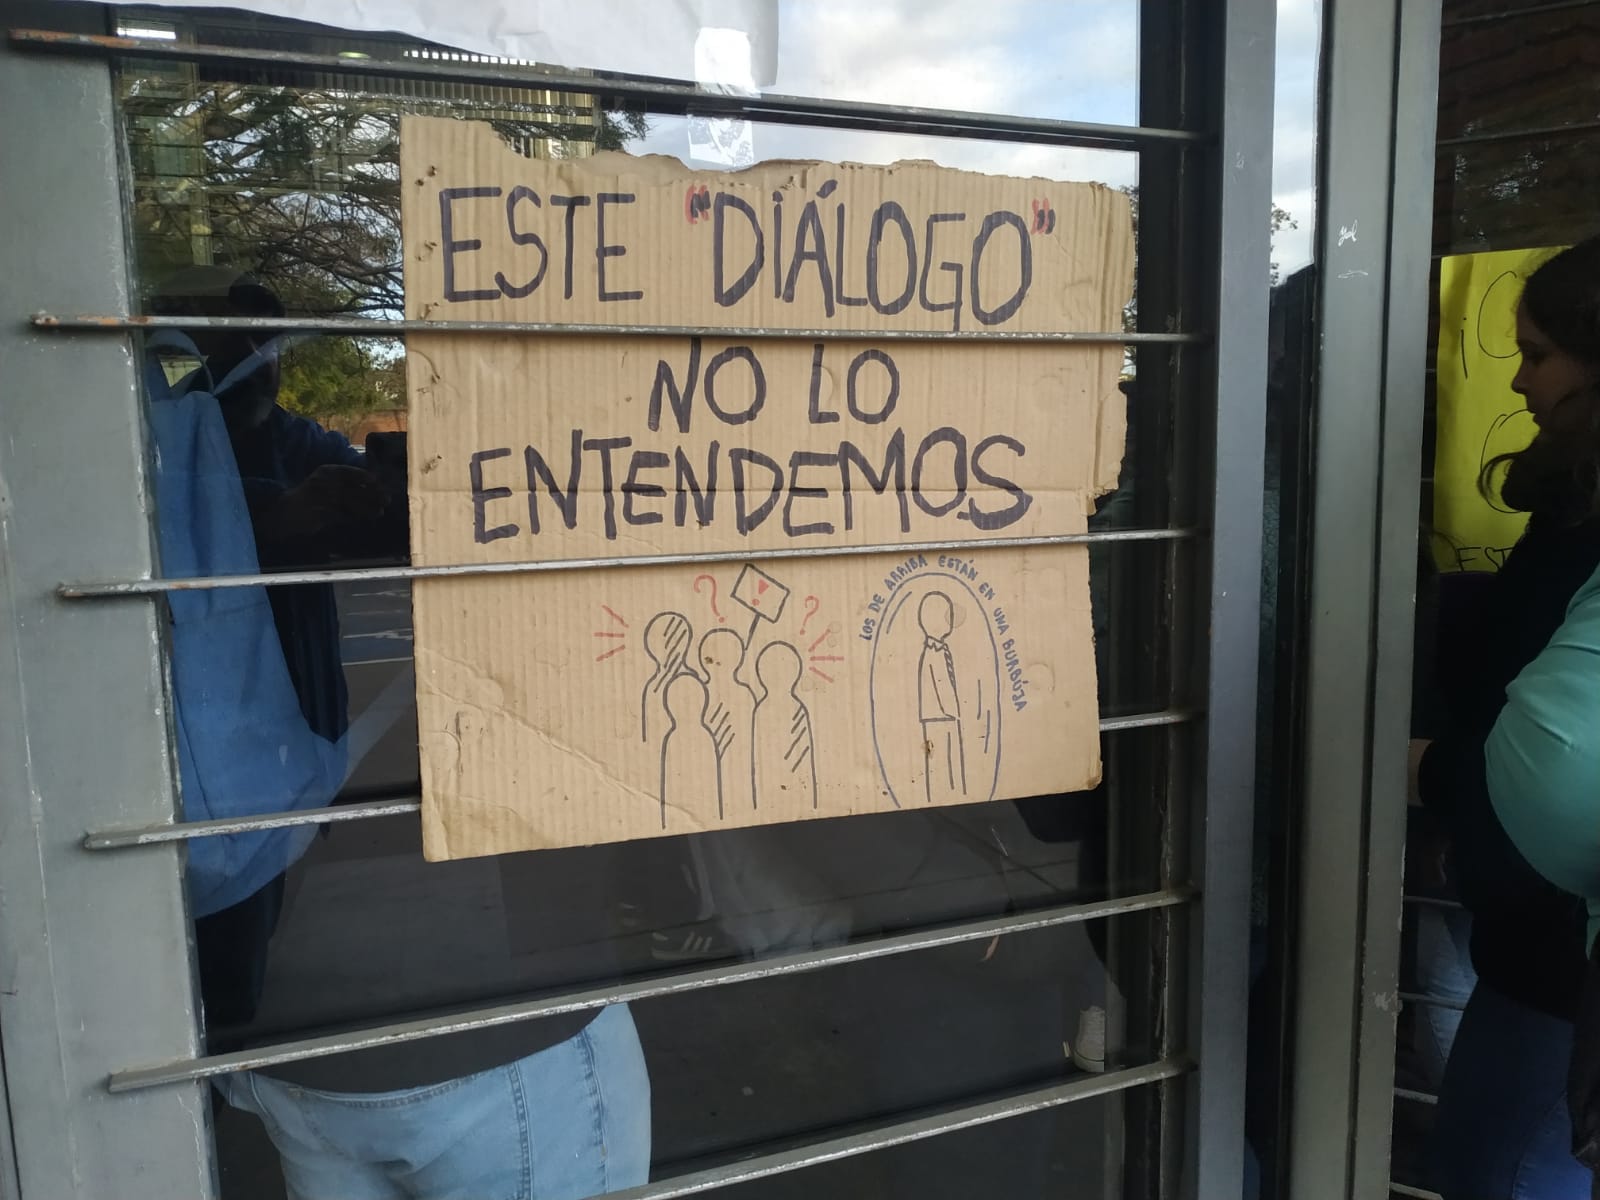 ESTE "DIÁLOGO"
NO LO
ENTENDEMOS
? ! ?
LOS DE ARRIBA ESTÁN EN UNA BURBÚJA
¡
EST